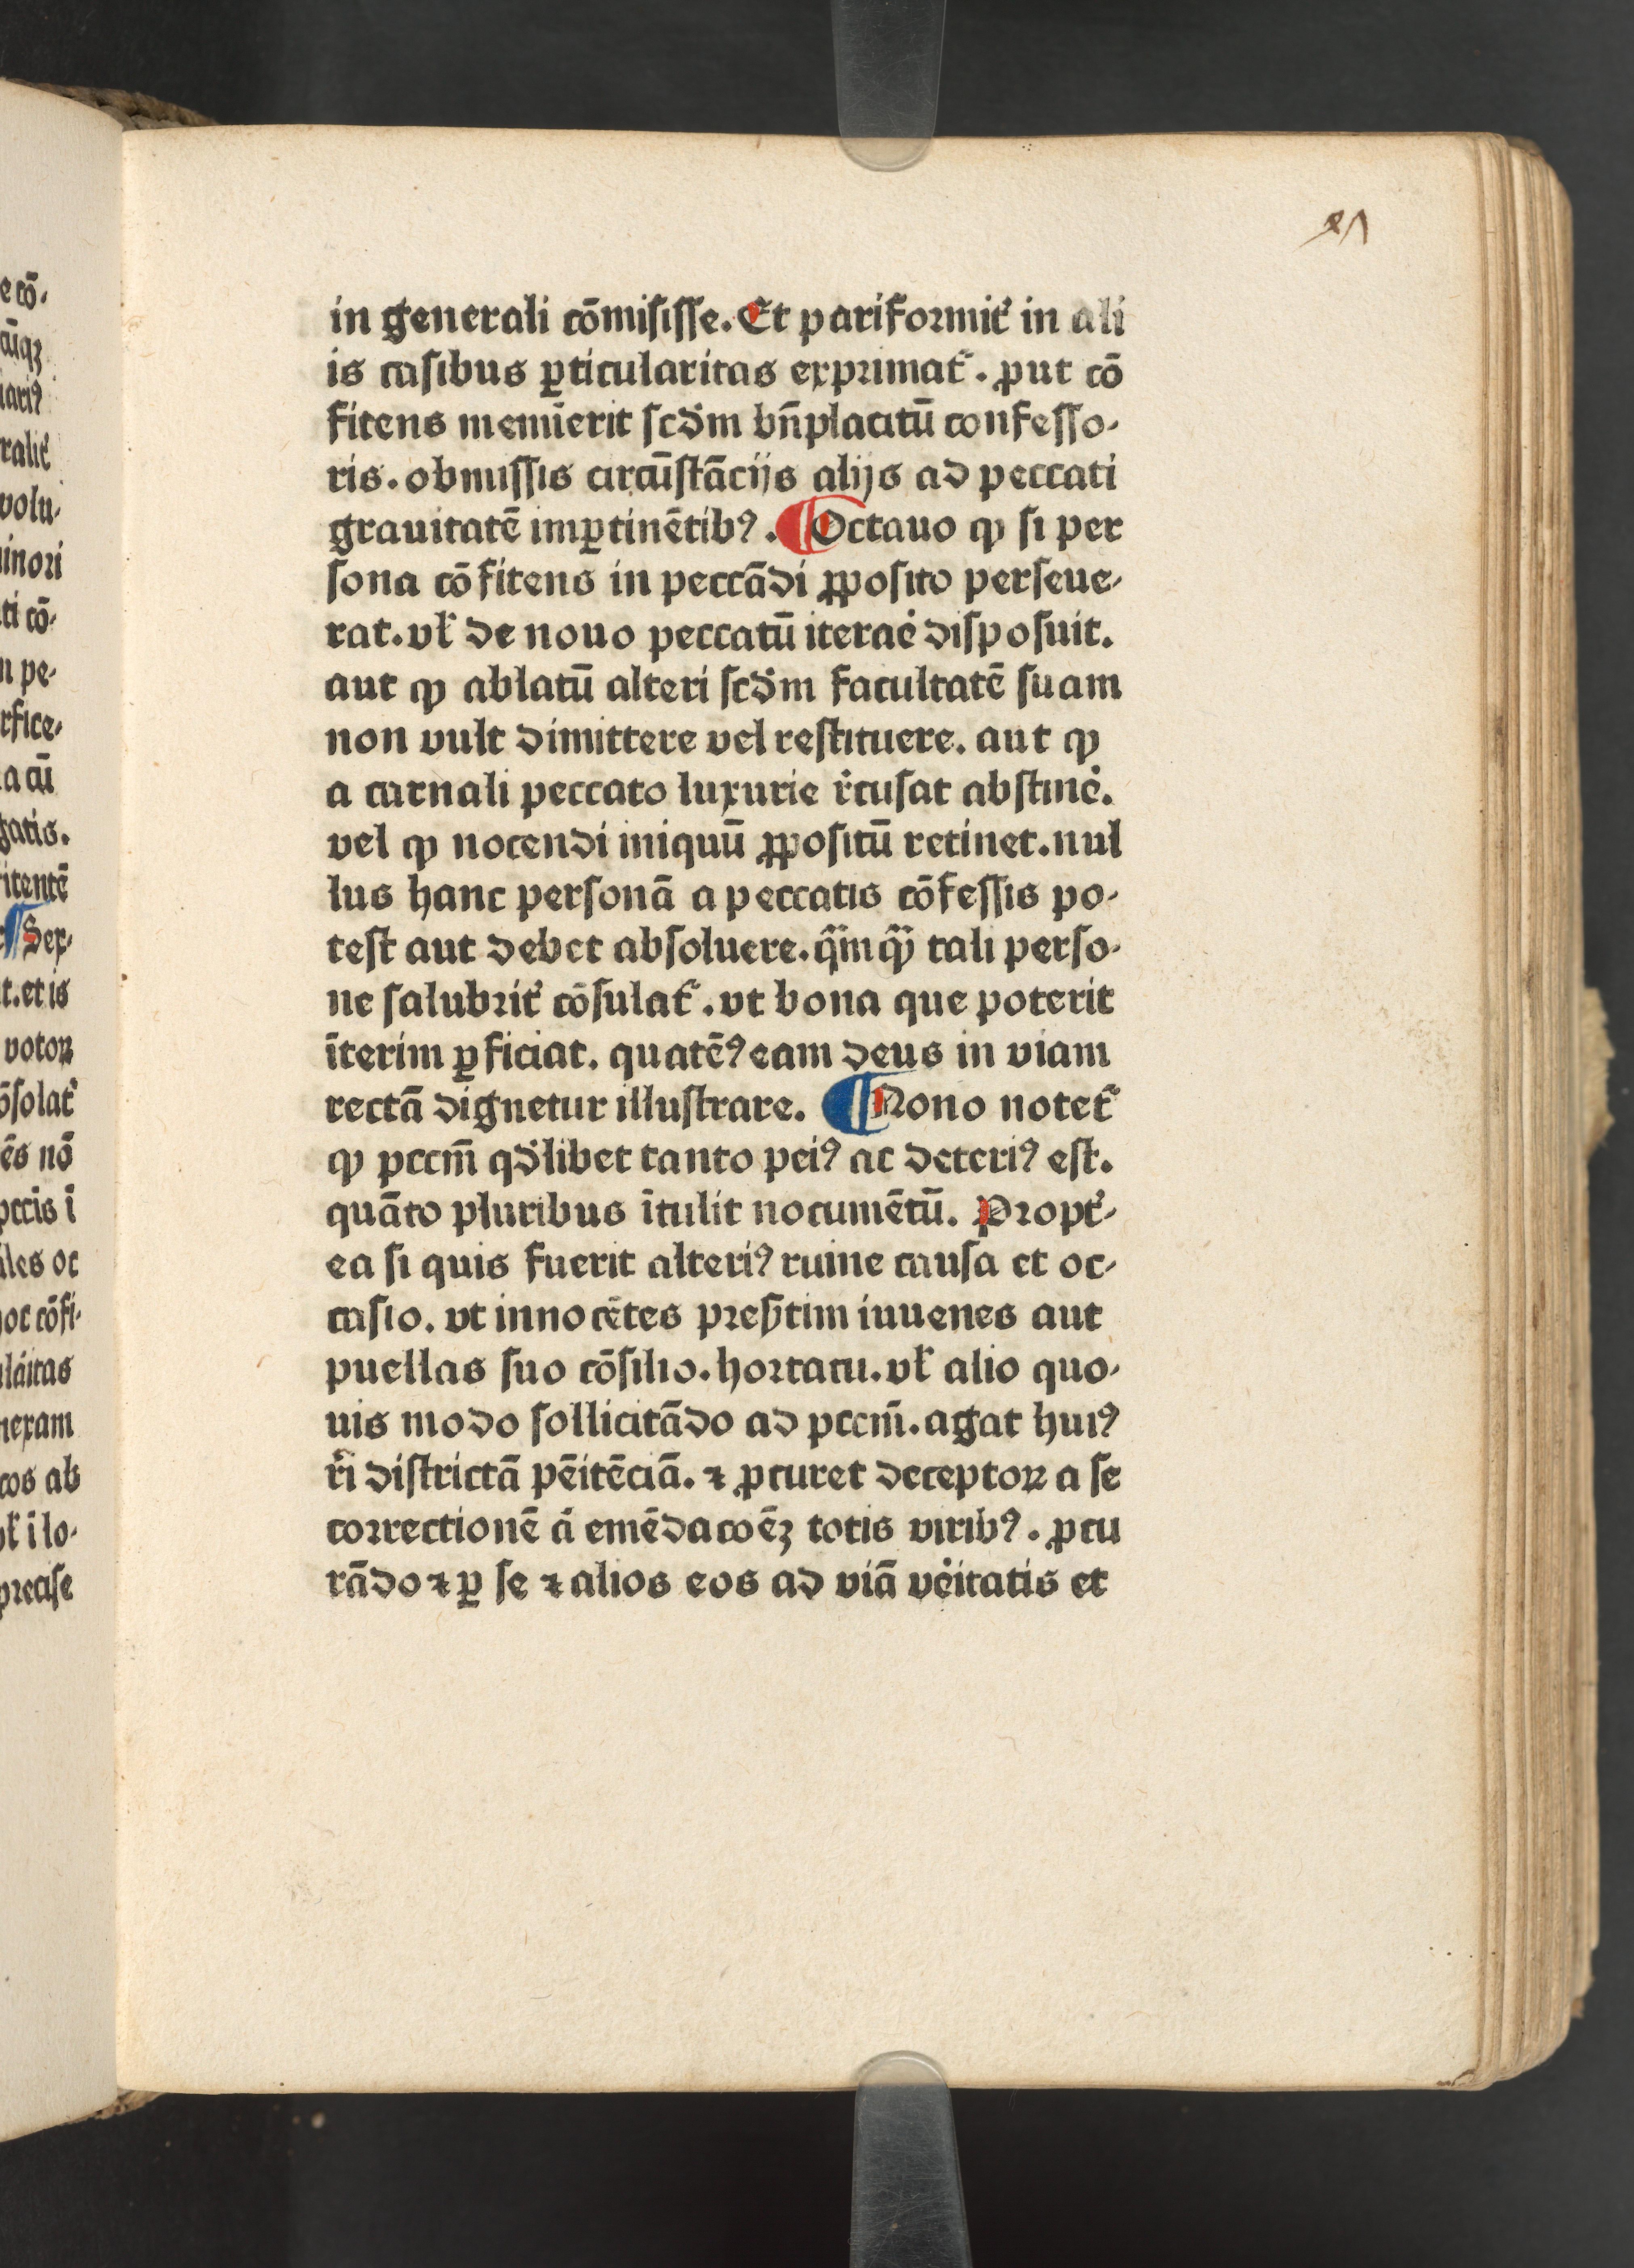 21
in generali cōmisisse. Et pariformit᷑ in ali
is casibus ꝑticularitas exprimat᷑. ꝓut cō
fitens meminerit scd̄m bn̄placitū confesso-
ris. obmissis circūstācijs alijs ad peccati
grauitatē imꝑtinētibꝰ. ¶ Octauo ꝙ si per
sona cōfitens in peccādi ꝓposito perseue-
rat. vl̄ de nouo peccatū iterar̄e disposuit.
aut ꝙ ablatū alteri scd̄m facultatē suam
non vult dimittere vel restituere. aut ꝙ
a carnali peccato luxurie r̄cusat abstiner̄e.
vel ꝙ nocendi iniquū ꝓpositū retinet. nul
lus hanc personā a peccatis cōfessis po-
test aut debet absoluere. q̄mq̄ tali perso-
ne salubrit᷑ cōsulat᷑. vt bona que poterit
īterim ꝑficiat. quatēꝰ eam deus in viam
rectā dignetur illustrare. ¶ Nono notet᷑
ꝙ pccm̄ qd̄libet tanto peiꝰ ac deteriꝰ est.
quāto pluribus ītulit nocumētū. Propt᷑-
ea si quis fuerit alteriꝰ ruine causa et oc-
casio. vt innocētes pres̄tim iuuenes aut
puellas suo cōsilio. hortatu. vl̄ alio quo-
uis modo sollicitādo ad pccm̄. agat huiꝰ
r̄i districtā pēitēciā. ⁊ ꝓcuret deceptoꝝ a se
correctionē ā emēdacōēꝫ totis viribꝰ. ꝓcu
rādo ⁊ ꝑ se ⁊ alios eos ad viā vēitatis et